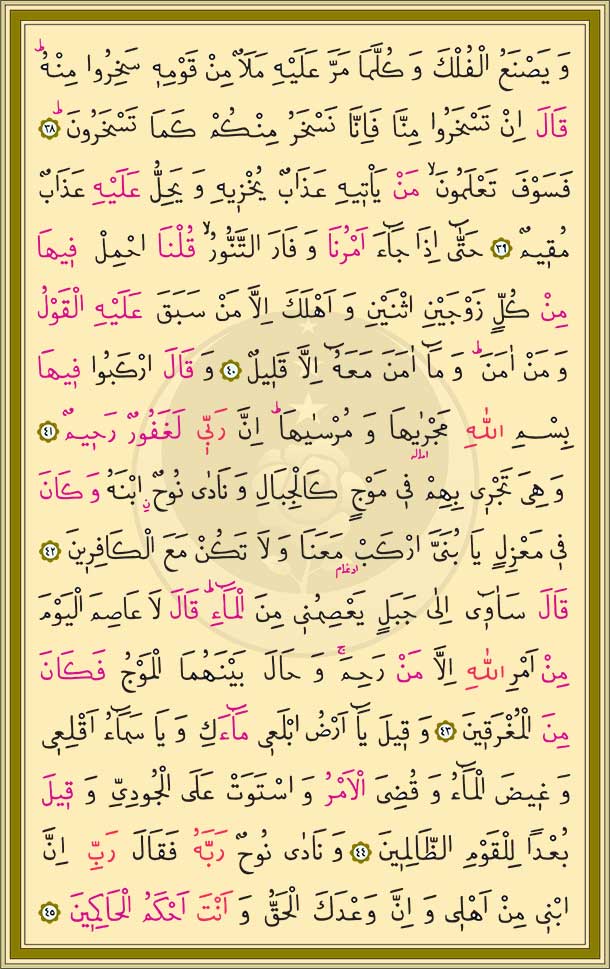 وَ يَصْنَعُ الْفُلْكَ وَ كُلَّمَا مَرَّ عَلَيْهِ مَلَاٌ مِنْ قَوْمِهٖ سَخِرُوا مِنْهُۜ
قَالَ اِنْ تَسْخَرُوا مِنَّا فَاِنَّا نَسْخَرُ مِنْكُمْ كَمَا تَسْخَرُونَۜ ﴿٣٨﴾
فَسَوْفَ تَعْلَمُونَۙ مَنْ يَاْتٖيهِ عَذَابٌ يُخْزٖيهِ وَ يَحِلُّ عَلَيْهِ عَذَابٌ
مُقٖيمٌ ﴿٣٩﴾ حَتّٰٓى اِذَا جَٓاءَ اَمْرُنَا وَ فَارَ التَّنُّورُۙ قُلْنَا احْمِلْ فٖيهَا
مِنْ كُلٍّ زَوْجَيْنِ اثْنَيْنِ وَ اَهْلَكَ اِلَّا مَنْ سَبَقَ عَلَيْهِ الْقَوْلُ
وَ مَنْ اٰمَنَۜ وَ مَٓا اٰمَنَ مَعَهُٓ اِلَّا قَلٖيلٌ ﴿٤٠﴾ وَ قَالَ ارْكَبُوا فٖيهَا
بِسْمِ اللّٰهِ مَجْرٰۭيهَا وَ مُرْسٰيهَاۜ اِنَّ رَبّٖي لَغَفُورٌ رَحٖيمٌ ﴿٤١﴾
اماله
وَ هِيَ تَجْرٖي بِهِمْ فٖي مَوْجٍ كَالْجِبَالِ وَ نَادٰى نُوحٌۨ ابْنَهُ وَ كَانَ
فٖي مَعْزِلٍ يَا بُنَيَّ ارْكَبْ مَعَنَا وَ لَا تَكُنْ مَعَ الْكَافِرٖينَ ﴿٤٢﴾
ادغام
قَالَ سَاٰوٖٓي اِلٰى جَبَلٍ يَعْصِمُنٖي مِنَ الْمَٓاءِۜ قَالَ لَا عَاصِمَ الْيَوْمَ
مِنْ اَمْرِ اللّٰهِ اِلَّا مَنْ رَحِمَۚ وَ حَالَ بَيْنَهُمَا الْمَوْجُ فَكَانَ
مِنَ الْمُغْرَقٖينَ ﴿٤٣﴾ وَ قٖيلَ يَٓا اَرْضُ ابْلَعٖي مَٓاءَكِ وَ يَا سَمَٓاءُ اَقْلِعٖي
وَ غٖيضَ الْمَٓاءُ وَ قُضِيَ الْاَمْرُ وَ اسْتَوَتْ عَلَى الْجُودِيِّ وَ قٖيلَ
بُعْدًا لِلْقَوْمِ الظَّالِمٖينَ ﴿٤٤﴾ وَ نَادٰى نُوحٌ رَبَّهُ فَقَالَ رَبِّ اِنَّ
ابْنٖي مِنْ اَهْلٖي وَ اِنَّ وَعْدَكَ الْحَقُّ وَ اَنْتَ اَحْكَمُ الْحَاكِمٖينَ ﴿٤٥﴾